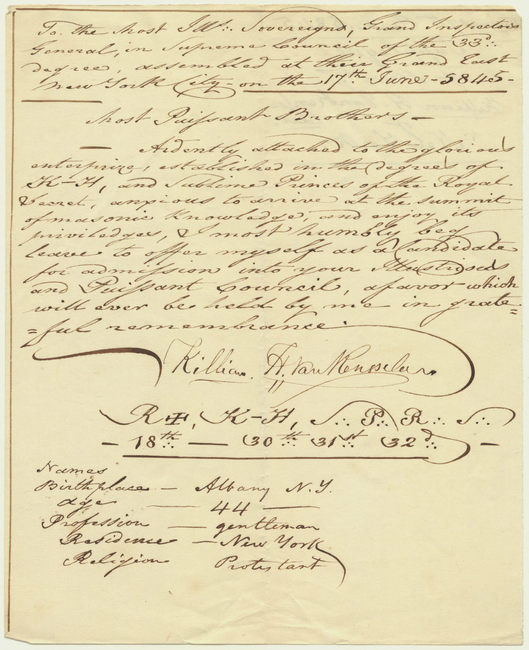 To the Most Ill∴ Sovereigns, Grand Inspectors
General, in Supreme Council of the 33d∴
degree, assembled at their Grand East
New York City on the 17th June 5845
Most Puissant Brothers
Ardently attached to the glorious
enterprize, established in the degrees of
K-H, and Sublime Princes of the Royal
Secret, anxious to arrive at the summit
of masonic knowledge, and enjoy its
priviledges, I most humbly beg
leave to offer myself as a Candidate
for admission into your Illustrious
and Puissant Council, a favor which
will ever be held by me in grate=
=ful remembrance.
Killian H. Van Rensselaer
R✠, K-H, S∴ P∴ R∴ S∴
18th — 30th 31st 32d
Names
Birthplace — Albany N.Y.
Age — 44 —
Profession — gentleman
Residence — New York
Religion Protestant